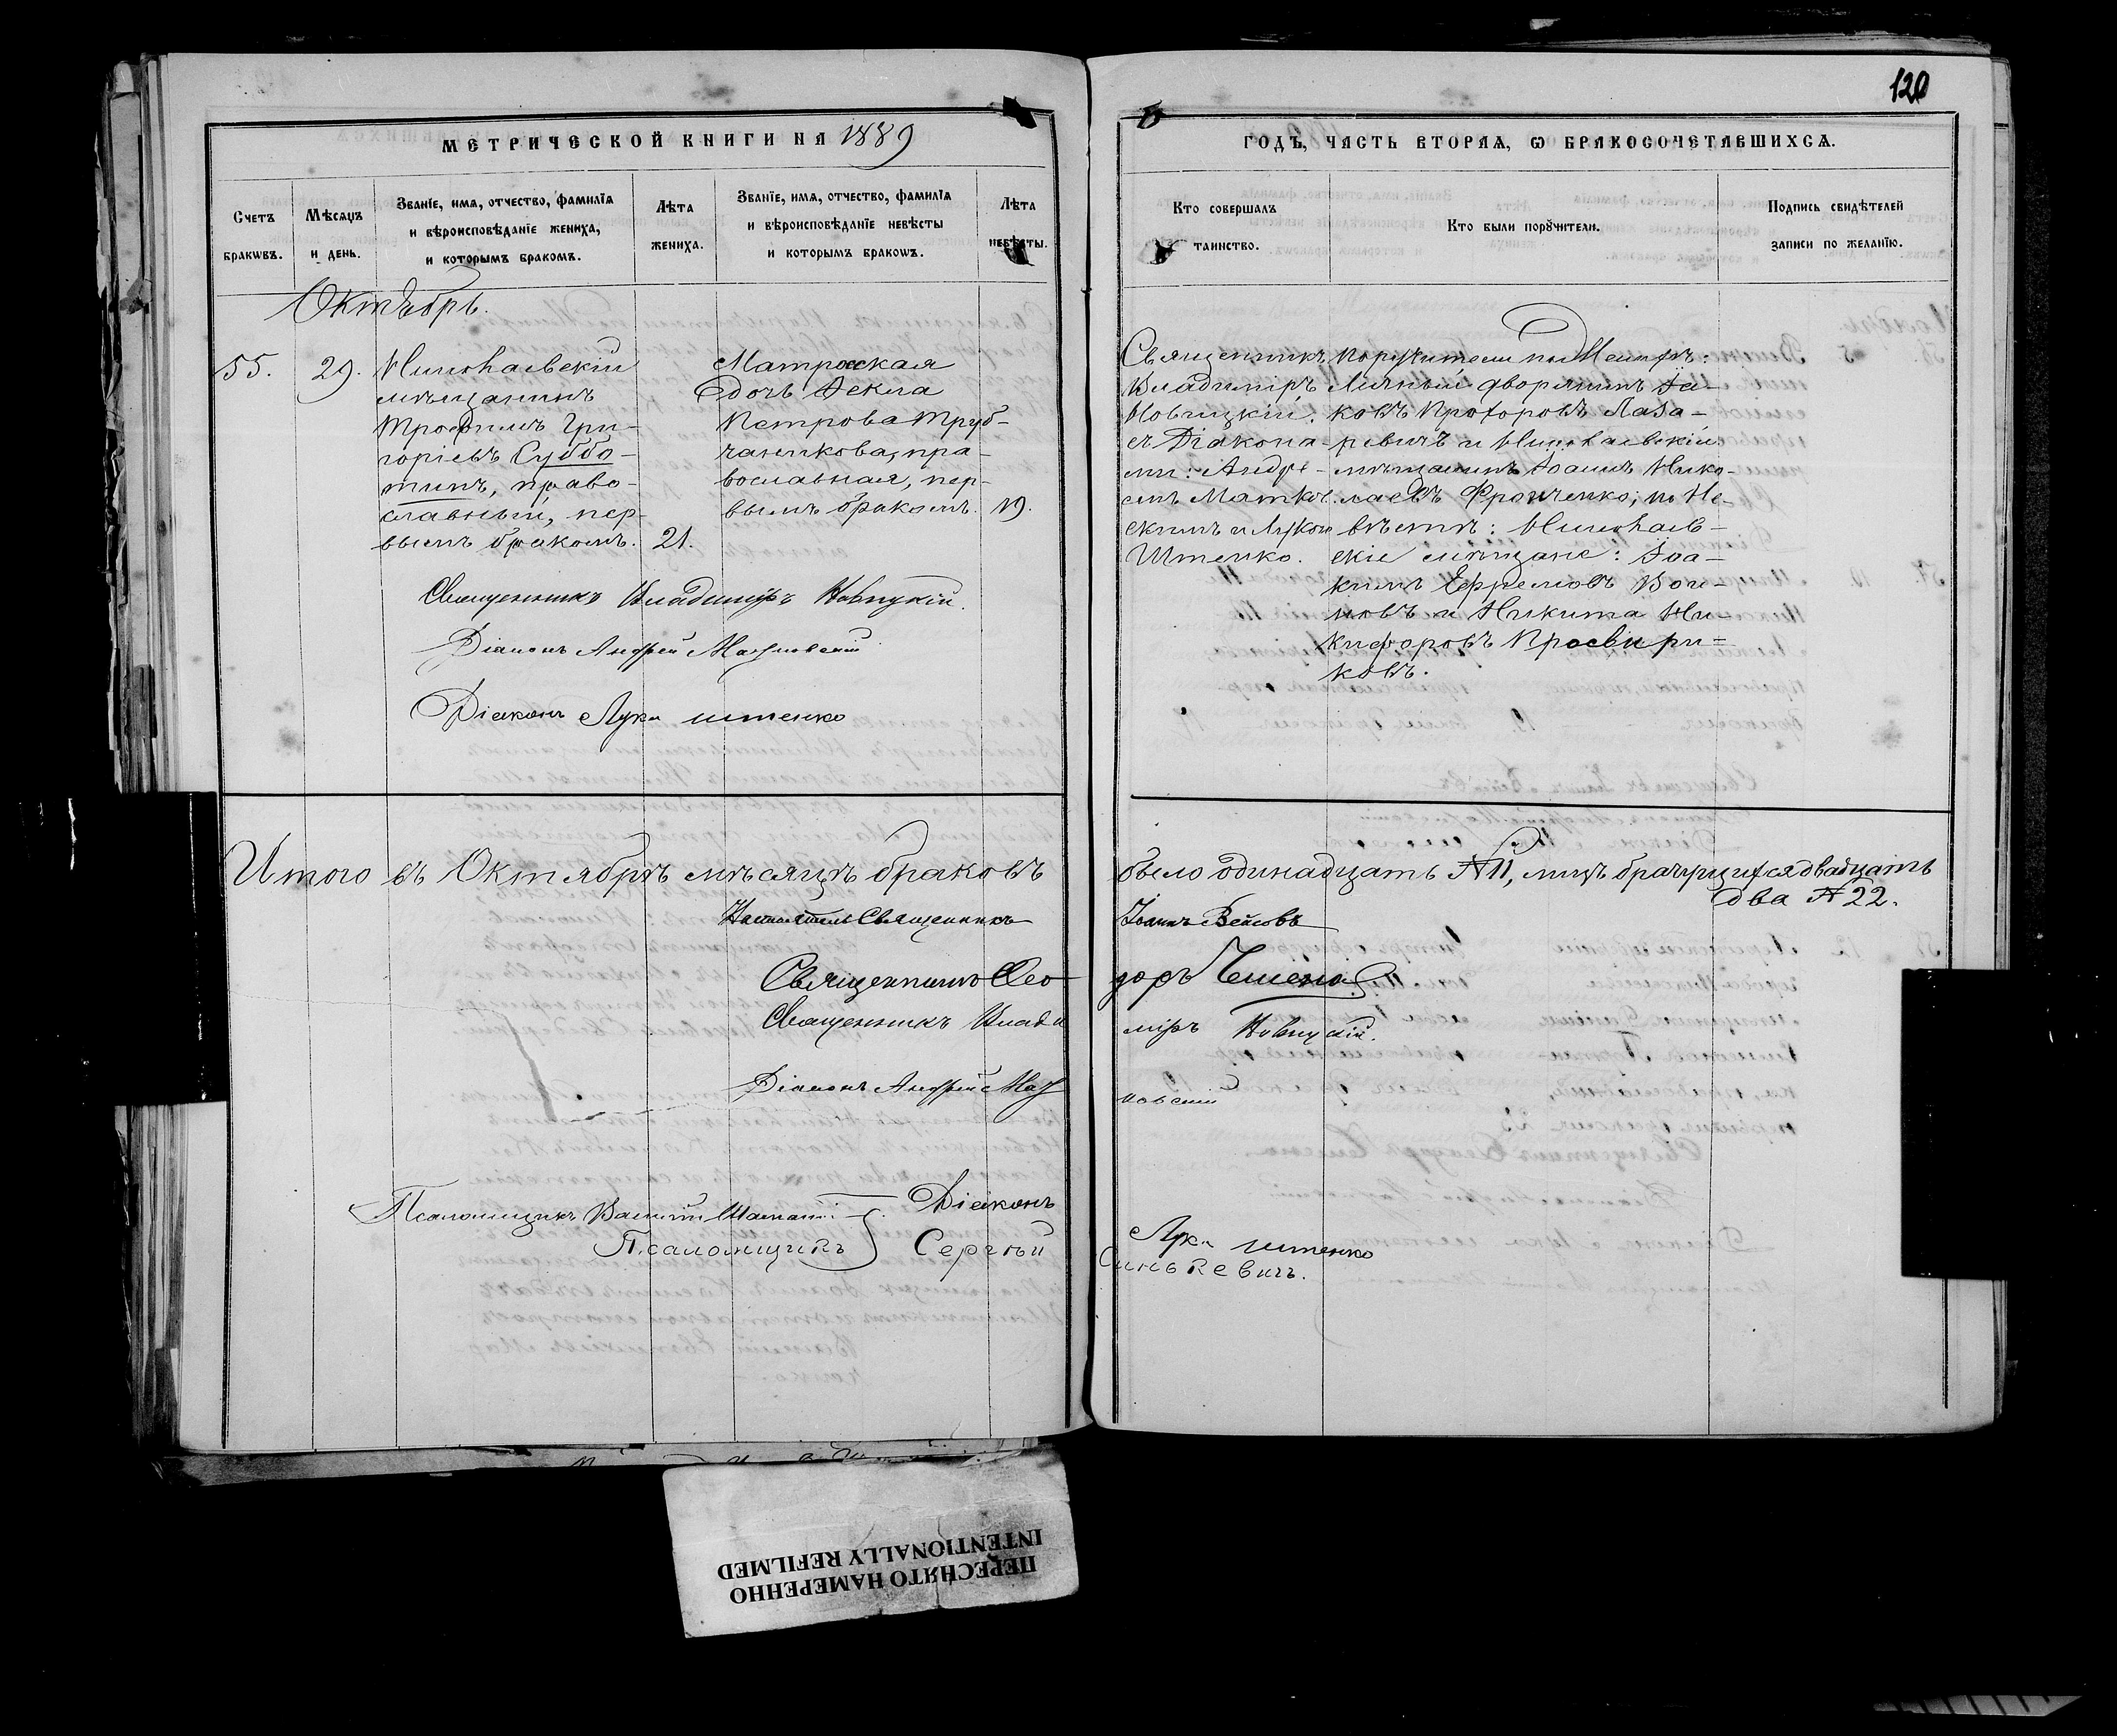 120
МЕТРИЧЕСКОЙ КНИГИ НА 1889
ГОДЪ, ЧАСТЬ ВТОРАѦ, Ѡ БРАКОСОЧЕТАВШИХСѦ.
Счетъ браквъ.
Мѣсяцъ и день.
Званїе, имѧ, отчество, фамилїѧ
и вѣроисповѣданїе жениха,
и которымъ бракомъ.
Лѣта
жениха.
Званїе, имѧ, отчество, фамилїѧ
и вѣроисповѣданїе невѣсты
и которымъ бракомъ.
Лѣта
невѣсты.
Кто совершалъ
таинство.
Кто были порꙋчители.
Подпись свидѣтелей
записи по желанїю.
Октябрь.
55.
29.
Николаевскій
мѣщанинъ
Трофимъ Гри-
горіевъ Суббо-
тинъ, право-
славный, пер-
вымъ бракомъ.
21.
Матросская
дочь Фекла
Петрова Труб-
чанинкова, пра-
вославная, пер-
вымъ бракомъ.
19.
Священникъ
Владиміръ
Новицкій
съ Діакона-
ми: Андре-
емъ
и Лукою
Штенко.
Поручители по Женихѣ:
Личный дворянинъ Іа-
ковъ Прохоровъ Лаза-
ревичъ и Николаевскій
мѣщанинъ Іоаннъ Нико-
лаевъ Фронченко; по Не-
вѣстѣ: Николаев-
скіе мѣщане: Іоа-
кимъ Ефремовъ Вои-
новъ и Никита Ни-
кифоровъ Просвири=
ковъ.
Священникъ Владиміръ Новицкій.
Діаконъ Андрей
Діаконъ Лука Штенко
Итого въ Октябрѣ мѣсяцѣ браковъ было одинадцать № 11, лицъ брачущихся двадцать
два № 22.
Настоятель Священникъ Іоаннъ
Священникъ Ѳеодоръ
Священникъ Владиміръ Новицкій.
Діаконъ Андрей
Псаломщикъ Василій
Діаконъ Лука Штенко
Псаломщикъ Сергѣй Синькевичъ.
ПЕРЕСНЯТО НАМЕРЕННО
INTENTIONALLY REFILMED